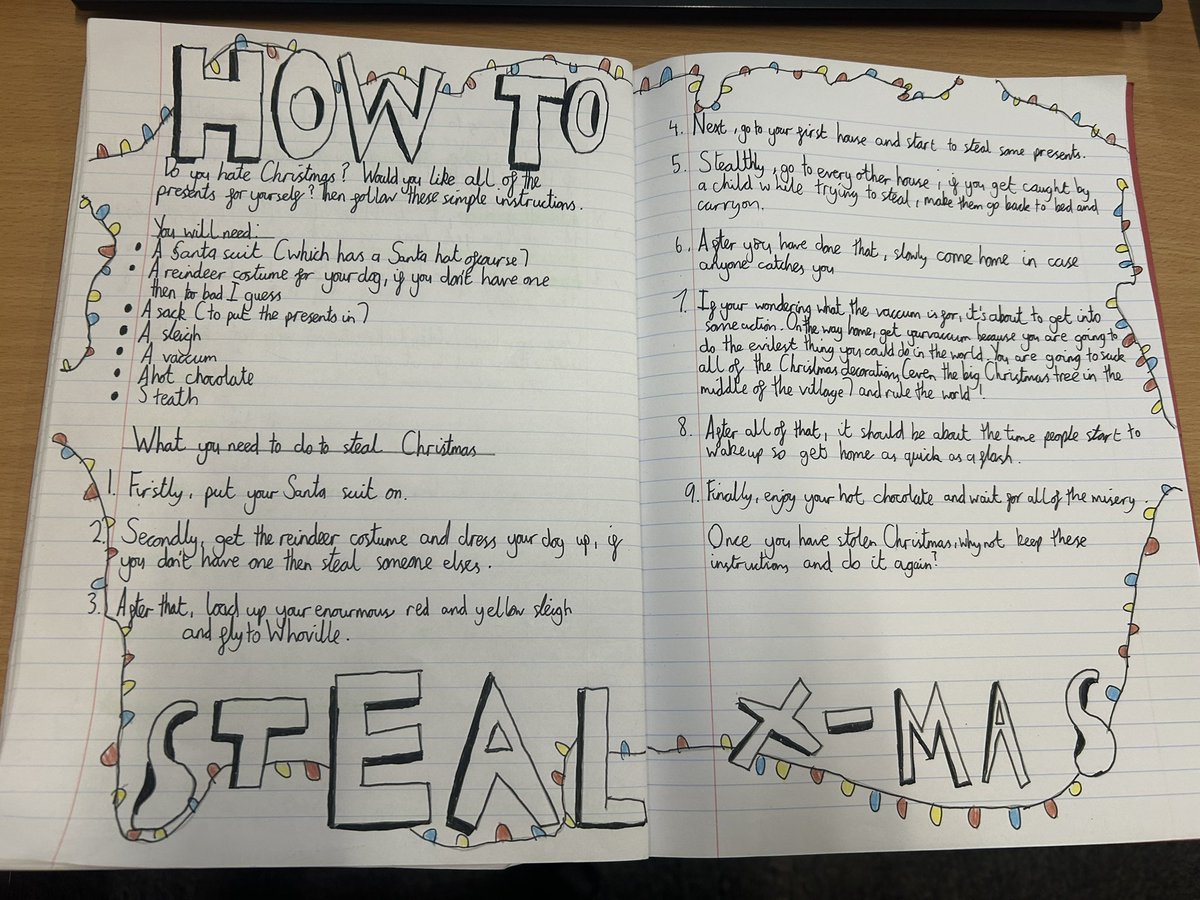 HOW TO
Do you hate Christmas? Would you like all of the
presents for yourself? Then follow these simple instructions.
You will need:
• A Santa suit (which has a Santa hat ofcourse)
• A reindeer costume for your dog, if you don't have one
then to bad I guess
• A sack (to put the presents in)
• A sleigh
• A vaccum
• A hot chocolate
• Steath
What you need to do to steal Christmas
1. Firstly, put your Santa suit on.
2. Secondly, get the reindeer costume and dress your dog up, if
you don't have one then steal someone elses.
3. After that, load up your enourmous red and yellow sleigh
and fly to Whoville.
4. Next, go to your first house and start to steal some presents.
5. Stealthly, go to every other house; if you get caught by
a child while trying to steal, make them go back to bed and
carry on.
6. After you have done that, slowly come home in case
anyone catches you
7. If your wondering what the vaccum is for, it's about to get into
some action. On the way home, get your vaccum because you are going to
do the evilest thing you could do in the world. You are going to suck
all of the Christmas decoration, (even the big Christmas tree in the
middle of the village) and rule the world!
8. After all of that, it should be about the time people start to
wake up so get home as quick as a flash.
9. Finally, enjoy your hot chocolate and wait for all of the misery.
Once you have stolen Christmas, why not keep these
instructions and do it again?
STEAL X-MAS